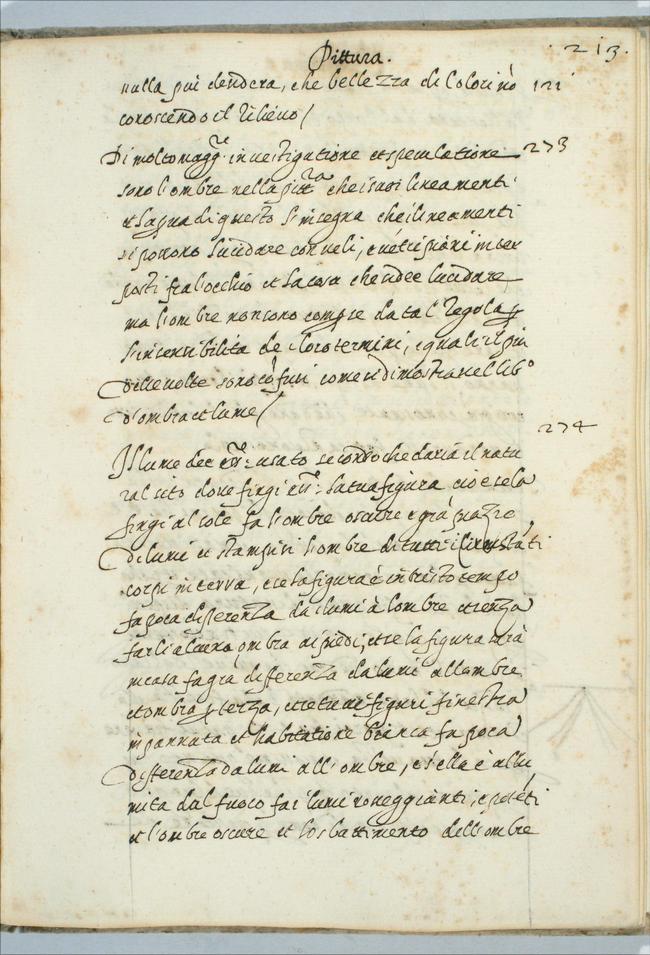 Pittura. 213.
nulla più dendera, che bellezza di colori nò 122
conoscendo il rilievo/
Di molto magg.re investigatione et speculatione 273
sono l'ombre nella pitt.ra che i suoi lineamenti
et la pua di questo s'insegna che i lineamenti
si possono lucidare con veli, ò vetri piani inter
posti fra l'occhio et la cosa che si dee lucidare
ma l'ombre non sono comprse da tal regola p
l'insensibilità de i loro termini, i quali il più
delle volte sono cofusi come si dimostra nel lib.o
d'ombra et lume/
274
Il lume dee ess.re usato secondo che daria il natu
ral sito dove fingi ess.e la tua figura cioè se la
fingi al sole fa l'ombre oscure e gra piazze
di lumi et stampisi l'ombre di tutti i circustáti
corpi in terra, e se la figura è in tristo tempo
fa poca differenza da i lumi à l'ombre et senza
farli alcuna ombra ai piedi, et se la figura sarà
in casa fa gra differenza da lumi all'ombre
et ombra p terra, et se tu ui figuri finestra
inpannata et habitatione bianca fa poca
differenza da lumi all'ombre, e s'ella è allu
mita dal fuoco fa i lumi roneggianti, e poteti
et l'ombre oscure et lo sbattimento dell'ombre